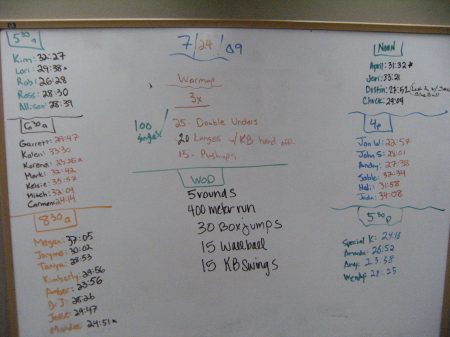 5:30a
Kim: 32:27
Lori: 29:38*
Rob: 26:28
Ross: 28:30
Allison: 28:39
6:30a
Garrett: 29:47
Kalen: 33:30
Karena: 33:26*
Mark: 32:42
Kelsie: 35:57
Mitch: 32:09
Carmen: 24:14
8:30a
Megan: 37:05
Jaryme: 30:02
Tanya: 28:53
Kimberly: 24:56
Amber: 23:56
DJ: 28:26
Jesse: 29:47
24:51*
7/24/09
Warmup
3x
100 Singles
25 - Double Unders
20 Lunges w/ KB hand off
15 - Pushups
WOD
5 rounds
400 meter run
30 Box jumps
15 wall ball
15 KB Swings
Noon
April: 31:32*
Jen: 33:21
Dustin: 27:52
Chuck: 29:09
4p
Jon W: 23:57
John S: 28:01
Andy: 27:38
Sable: 32:34
Heli: 31:58
34:08
5:30p
Special K: 24:13
Amanda: 26:52
Amy: 23:38
Wendy: 28:25